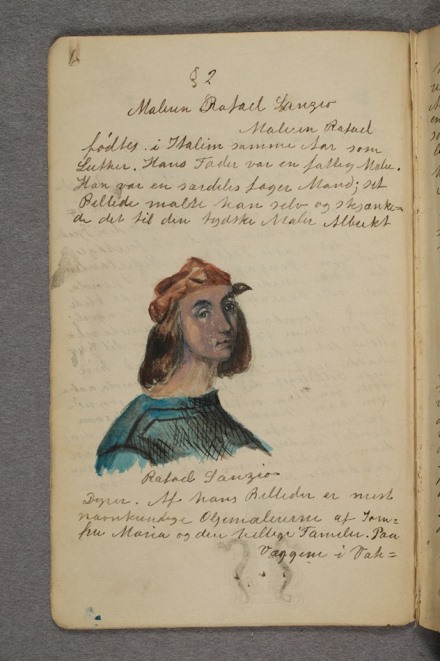 6
§ 2
Maleren Rafael Sanzio
Maleren Rafael
fødtes i Italien samme Aar som
Luther. Hans Fader var en fattig Maler.
Han var en særdeles fager Mand; sit
Billede malte han selv og skjænke-
de det til den tydske Maler Albrekt
Rafael Sanzio
Dyrer. Af hans Billeder er mest
navnkundige Oljemalerierne af Jom=
fru Maria og den hellige Familie. Paa
Væggene i Vati=